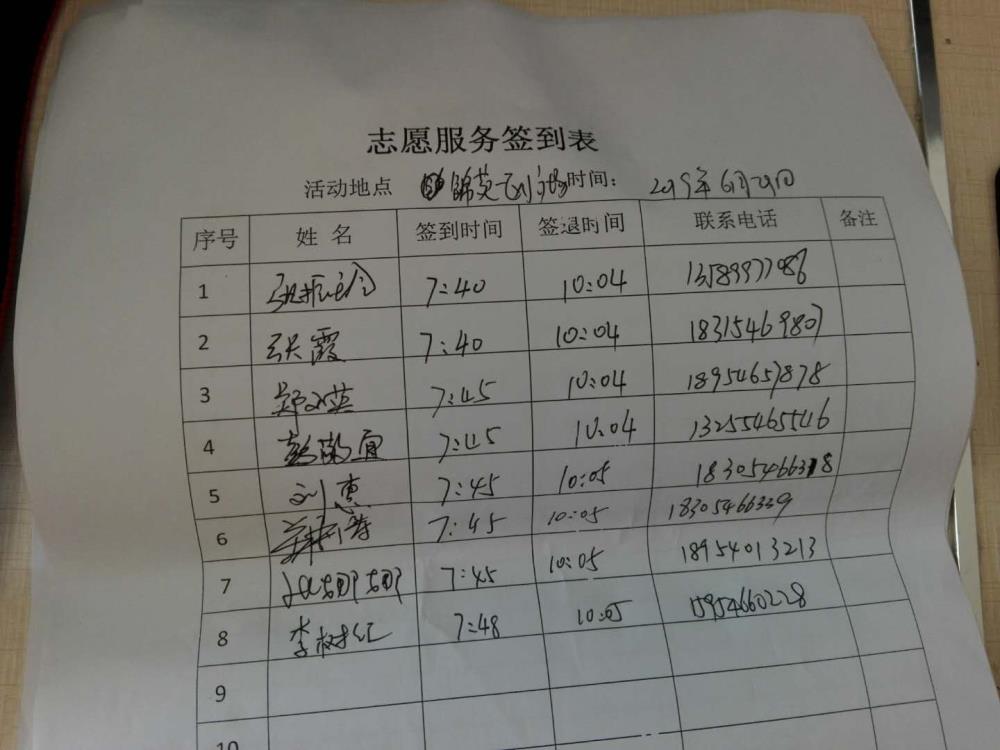 志愿服务签到表
活动地点 锦英 时间: 2019年6月29日
序号 姓名 签到时间 签退时间 联系电话 备注
1 7:40 10:04 13589977086
2 张霞 7:40 10:04 18315469807
3 郑英 7:45 10:04 18954657878
4 7:45 10:04 13255465546
5 刘惠 7:45 10:05 18305466318
6 7:45 10:05 18305466339
7 7:45 10:05 18954013213
8 李树红 7:48 10:05 15954660228
9
10